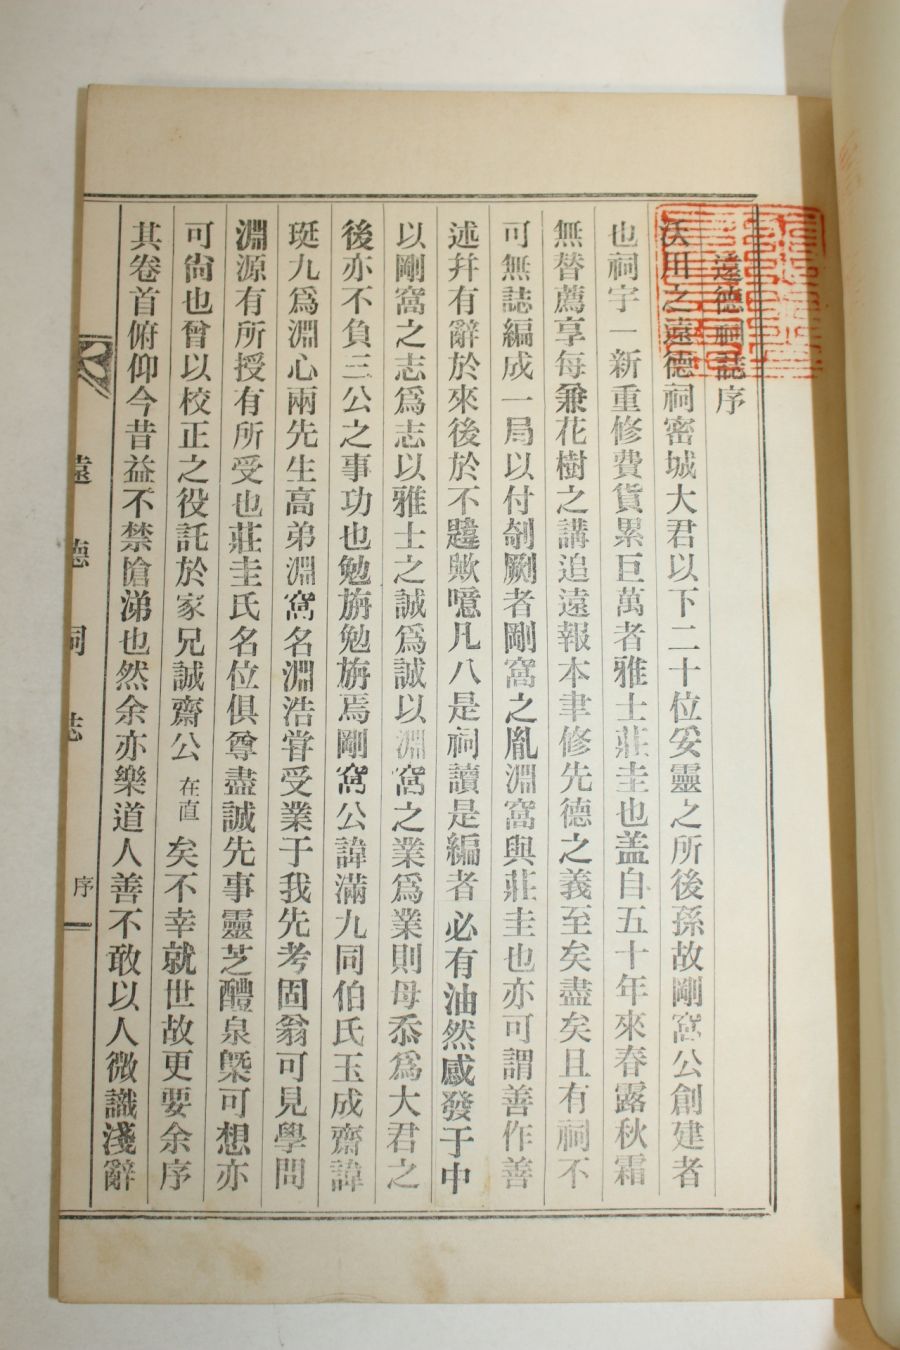 遠德祠誌序
沃川之遠德祠密城大君以下二十位妥靈之所後孫故剛窩公創建者
也祠宇一新重修費貨累巨萬者雅士莊圭也盖自五十年來春露秋霜
無替薦享每兼花樹之講追遠報本聿修先德之義至矣盡矣且有祠不
可無誌編成一局以付剞劂者剛窩之胤淵窩與莊圭也亦可謂善作善
述幷有辭於來後於不韙歟噫凡八是祠讀是編者必有油然感發于中
以剛窩之志爲志以雅士之誠爲誠以淵窩之業爲業則毋忝爲大君之
後亦不負三公之事功也勉旃勉旃焉剛窩公諱滿九同伯氏玉成齋諱
珽九爲淵心兩先生高弟淵窩名淵浩甞受業于我先考固翁可見學問
淵源有所授有所受也莊圭氏名位俱尊盡誠先事靈芝醴泉槩可想亦
可尙也曾以校正之役託於家兄誠齋公在直矣不幸就世故更要余序
其卷首俯仰今昔益不禁愴涕也然余亦樂道人善不敢以人微識淺辭
遠德祠誌 序